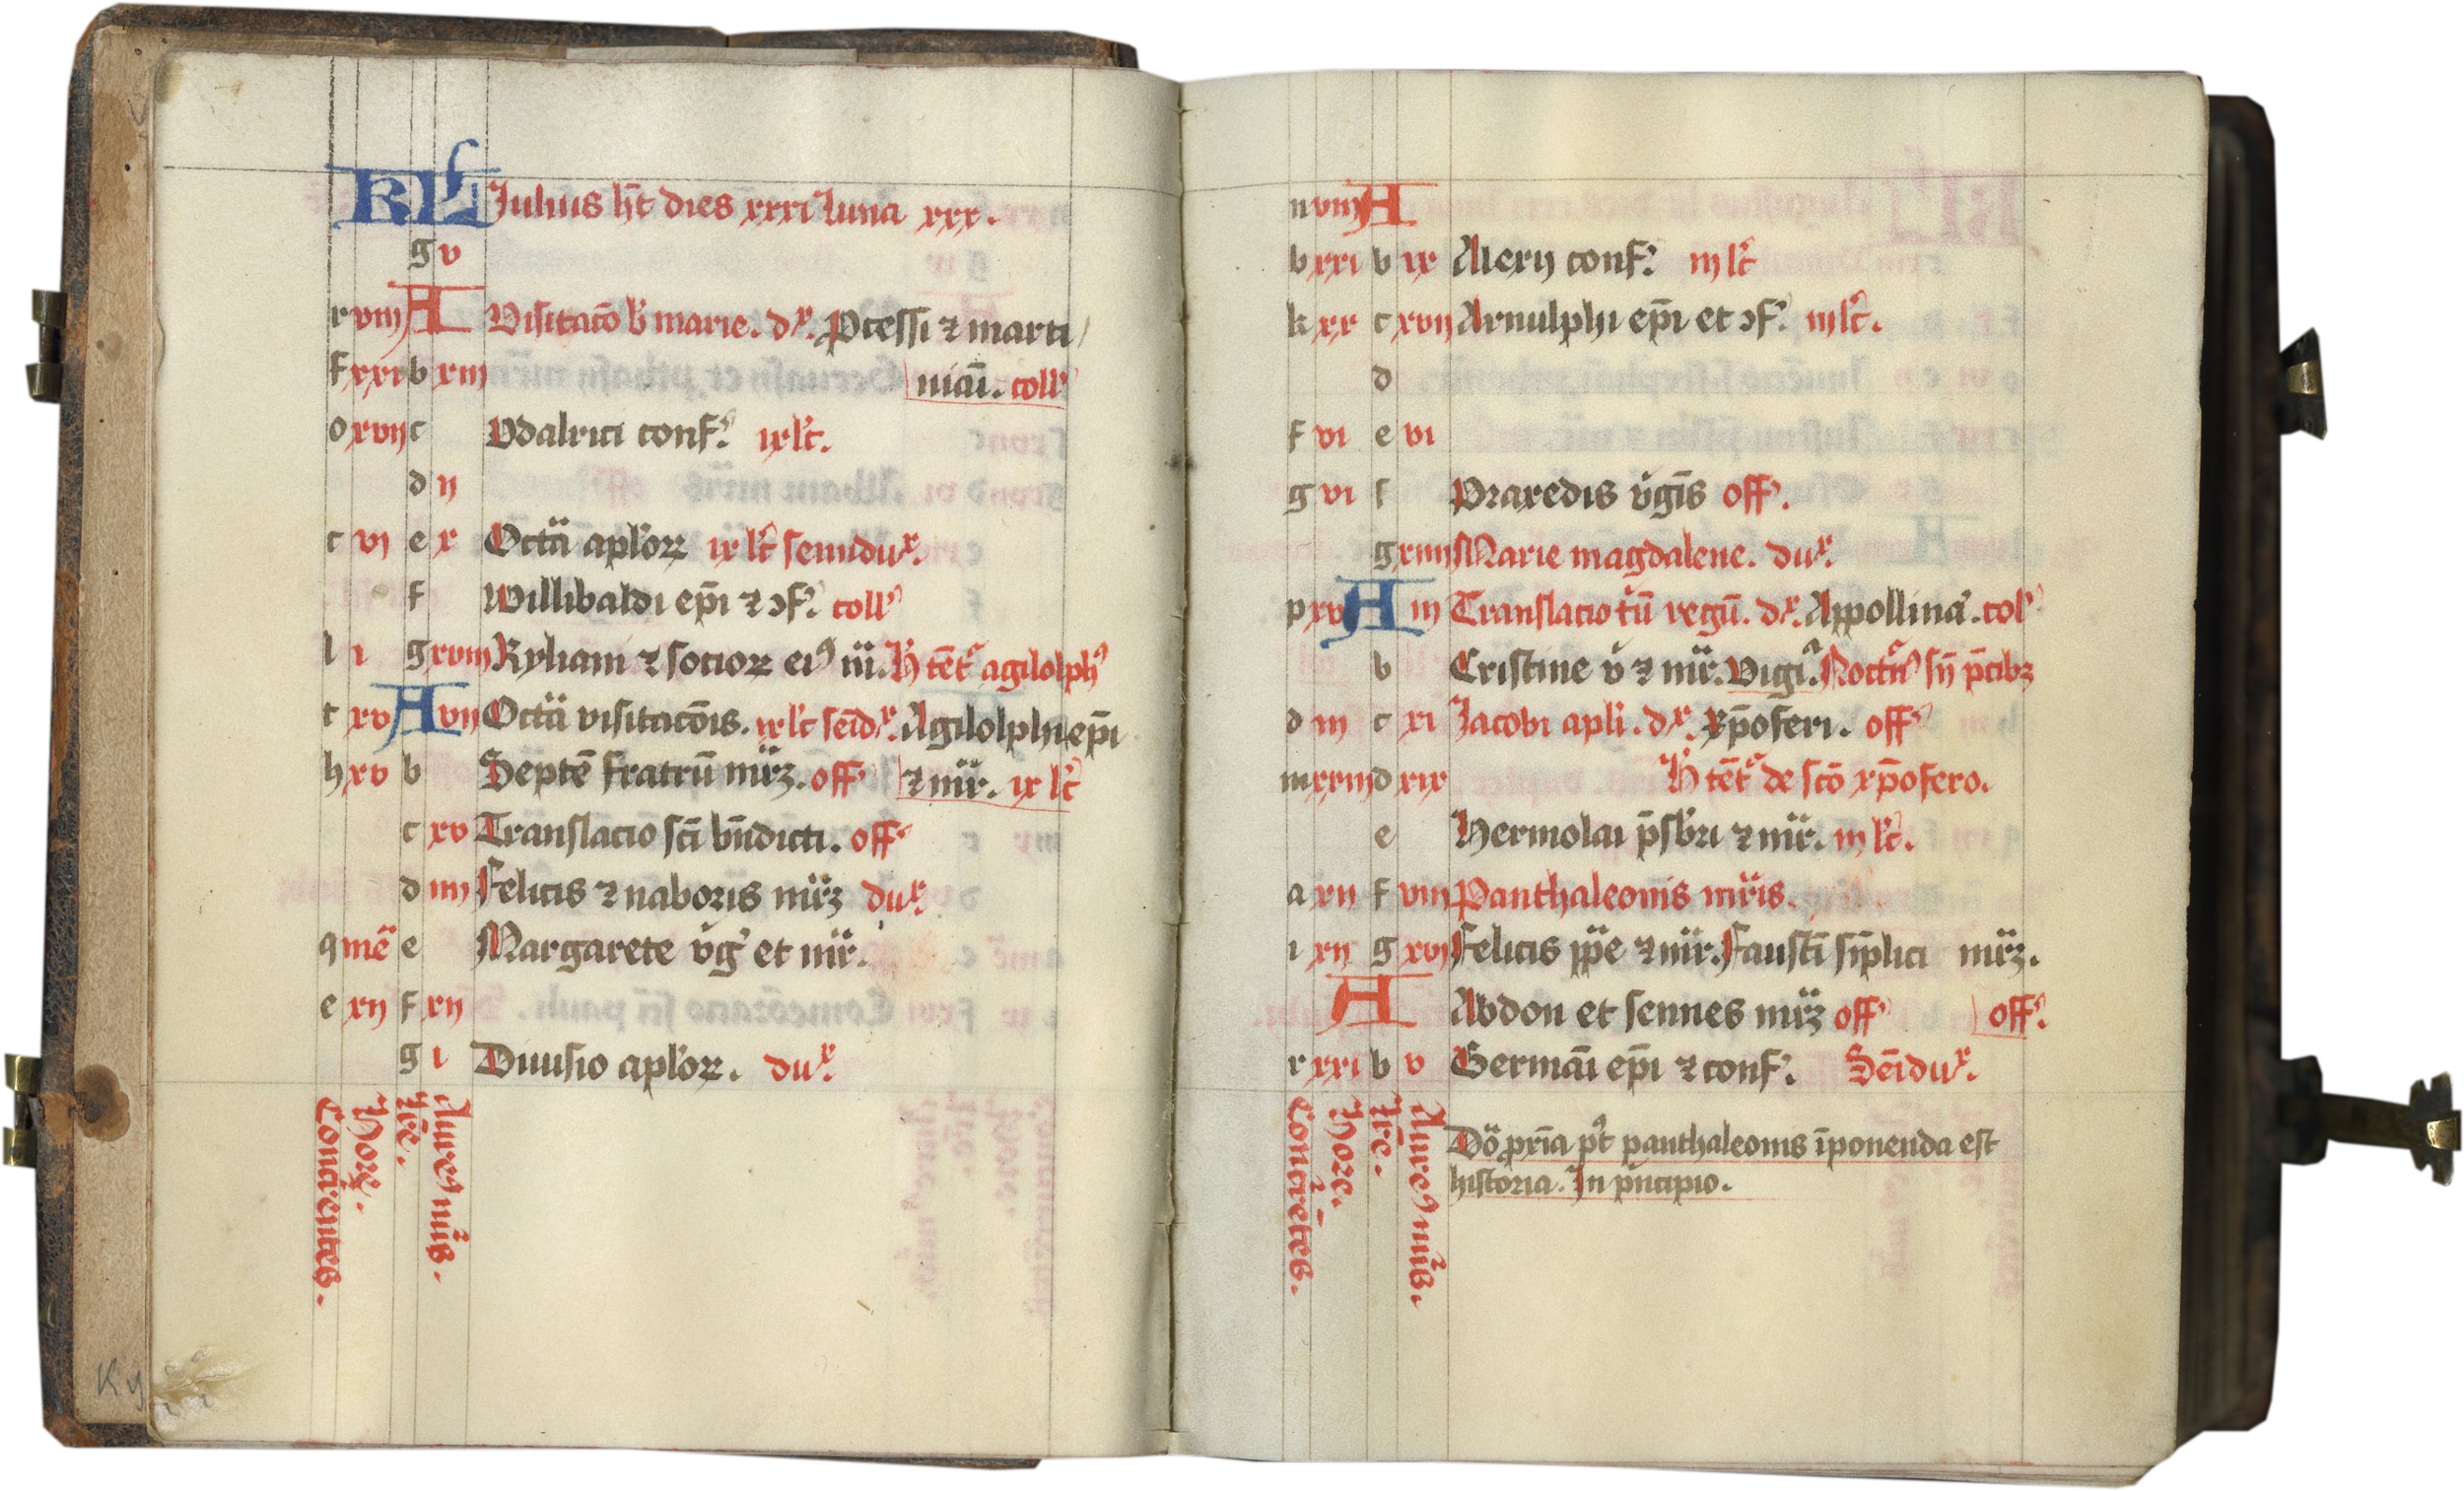 KL Julius ht dies xxxi luna xxx.
g v
r viij A Visitaco b marie. dx. Pcessi ⁊ marti
f xxi b xiij niani. coll
o xvij c Vdalrici conf. ix lc.
d ij
c vj e x Octa aplor ix lc semidux.
f Willibaldi epi ⁊ ɔf. coll
l i g xviij Kyliani ⁊ socior ei⁹ m. H tet agilolph⁹
t xv A vij Octa visitacois. ix lc seidx. Agilolphi epi
h xv b Septe fratru mrz. off ⁊ mr. ix lc
c xv Translacio sci bndicti. off
d iiij Felicis ⁊ naboris mrz dux
q me e Margarete vg et mr.
e xij f xij
g i Diuisio aplor. dux
Concurrentes.
Hore.
Lre.
Aure⁹ nus.
n viij A
b xxi b ix Alexij conf. iij lc
k xx c xvij Arnulphi epi et ɔf. iij lc.
d
f vi e vi
g vi f Praxedis vgis off.
g xiiij Marie magdalene. dux.
p xv A iij Translacio tu regu. dx. Appollina. col
b Cristine v ⁊ mr. Vigi. Noctu sn pcibz
d iij c xi Jacobi apli. dx. xpoferi. off
m xxiij d xix H tet de sco xpofero.
e Hermolai psbri ⁊ mr. iij lc.
a xij f viij Panthaleonis mris.
i xij g xvj Felicis ppe ⁊ mr. Fausti siplici mrz.
A Abdon et sennes mrz off off.
r xxi b v Germani epi ⁊ conf. Seidux.
Concurretes.
Hore.
Lre.
Aure⁹ nus.
Do pxia pt panthaleonis iponenda est
historia. In pncipio.